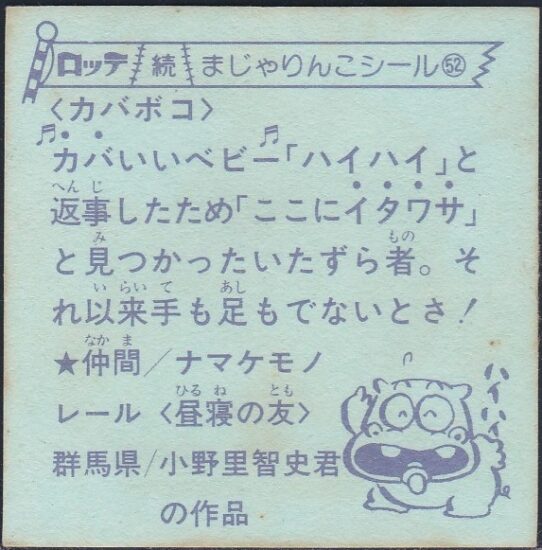 ロッテ 続 まじゃりんこシール 52
〈カバボコ〉
カバいいベビー「ハイハイ」と
返事したため「ここにイタワサ」
と見つかったいたずら者。そ
れ以来手も足もでないとさ!
★仲間/ナマケモノ
レール〈昼寝の友〉
群馬県/小野里智史君
の作品
ハイハイ